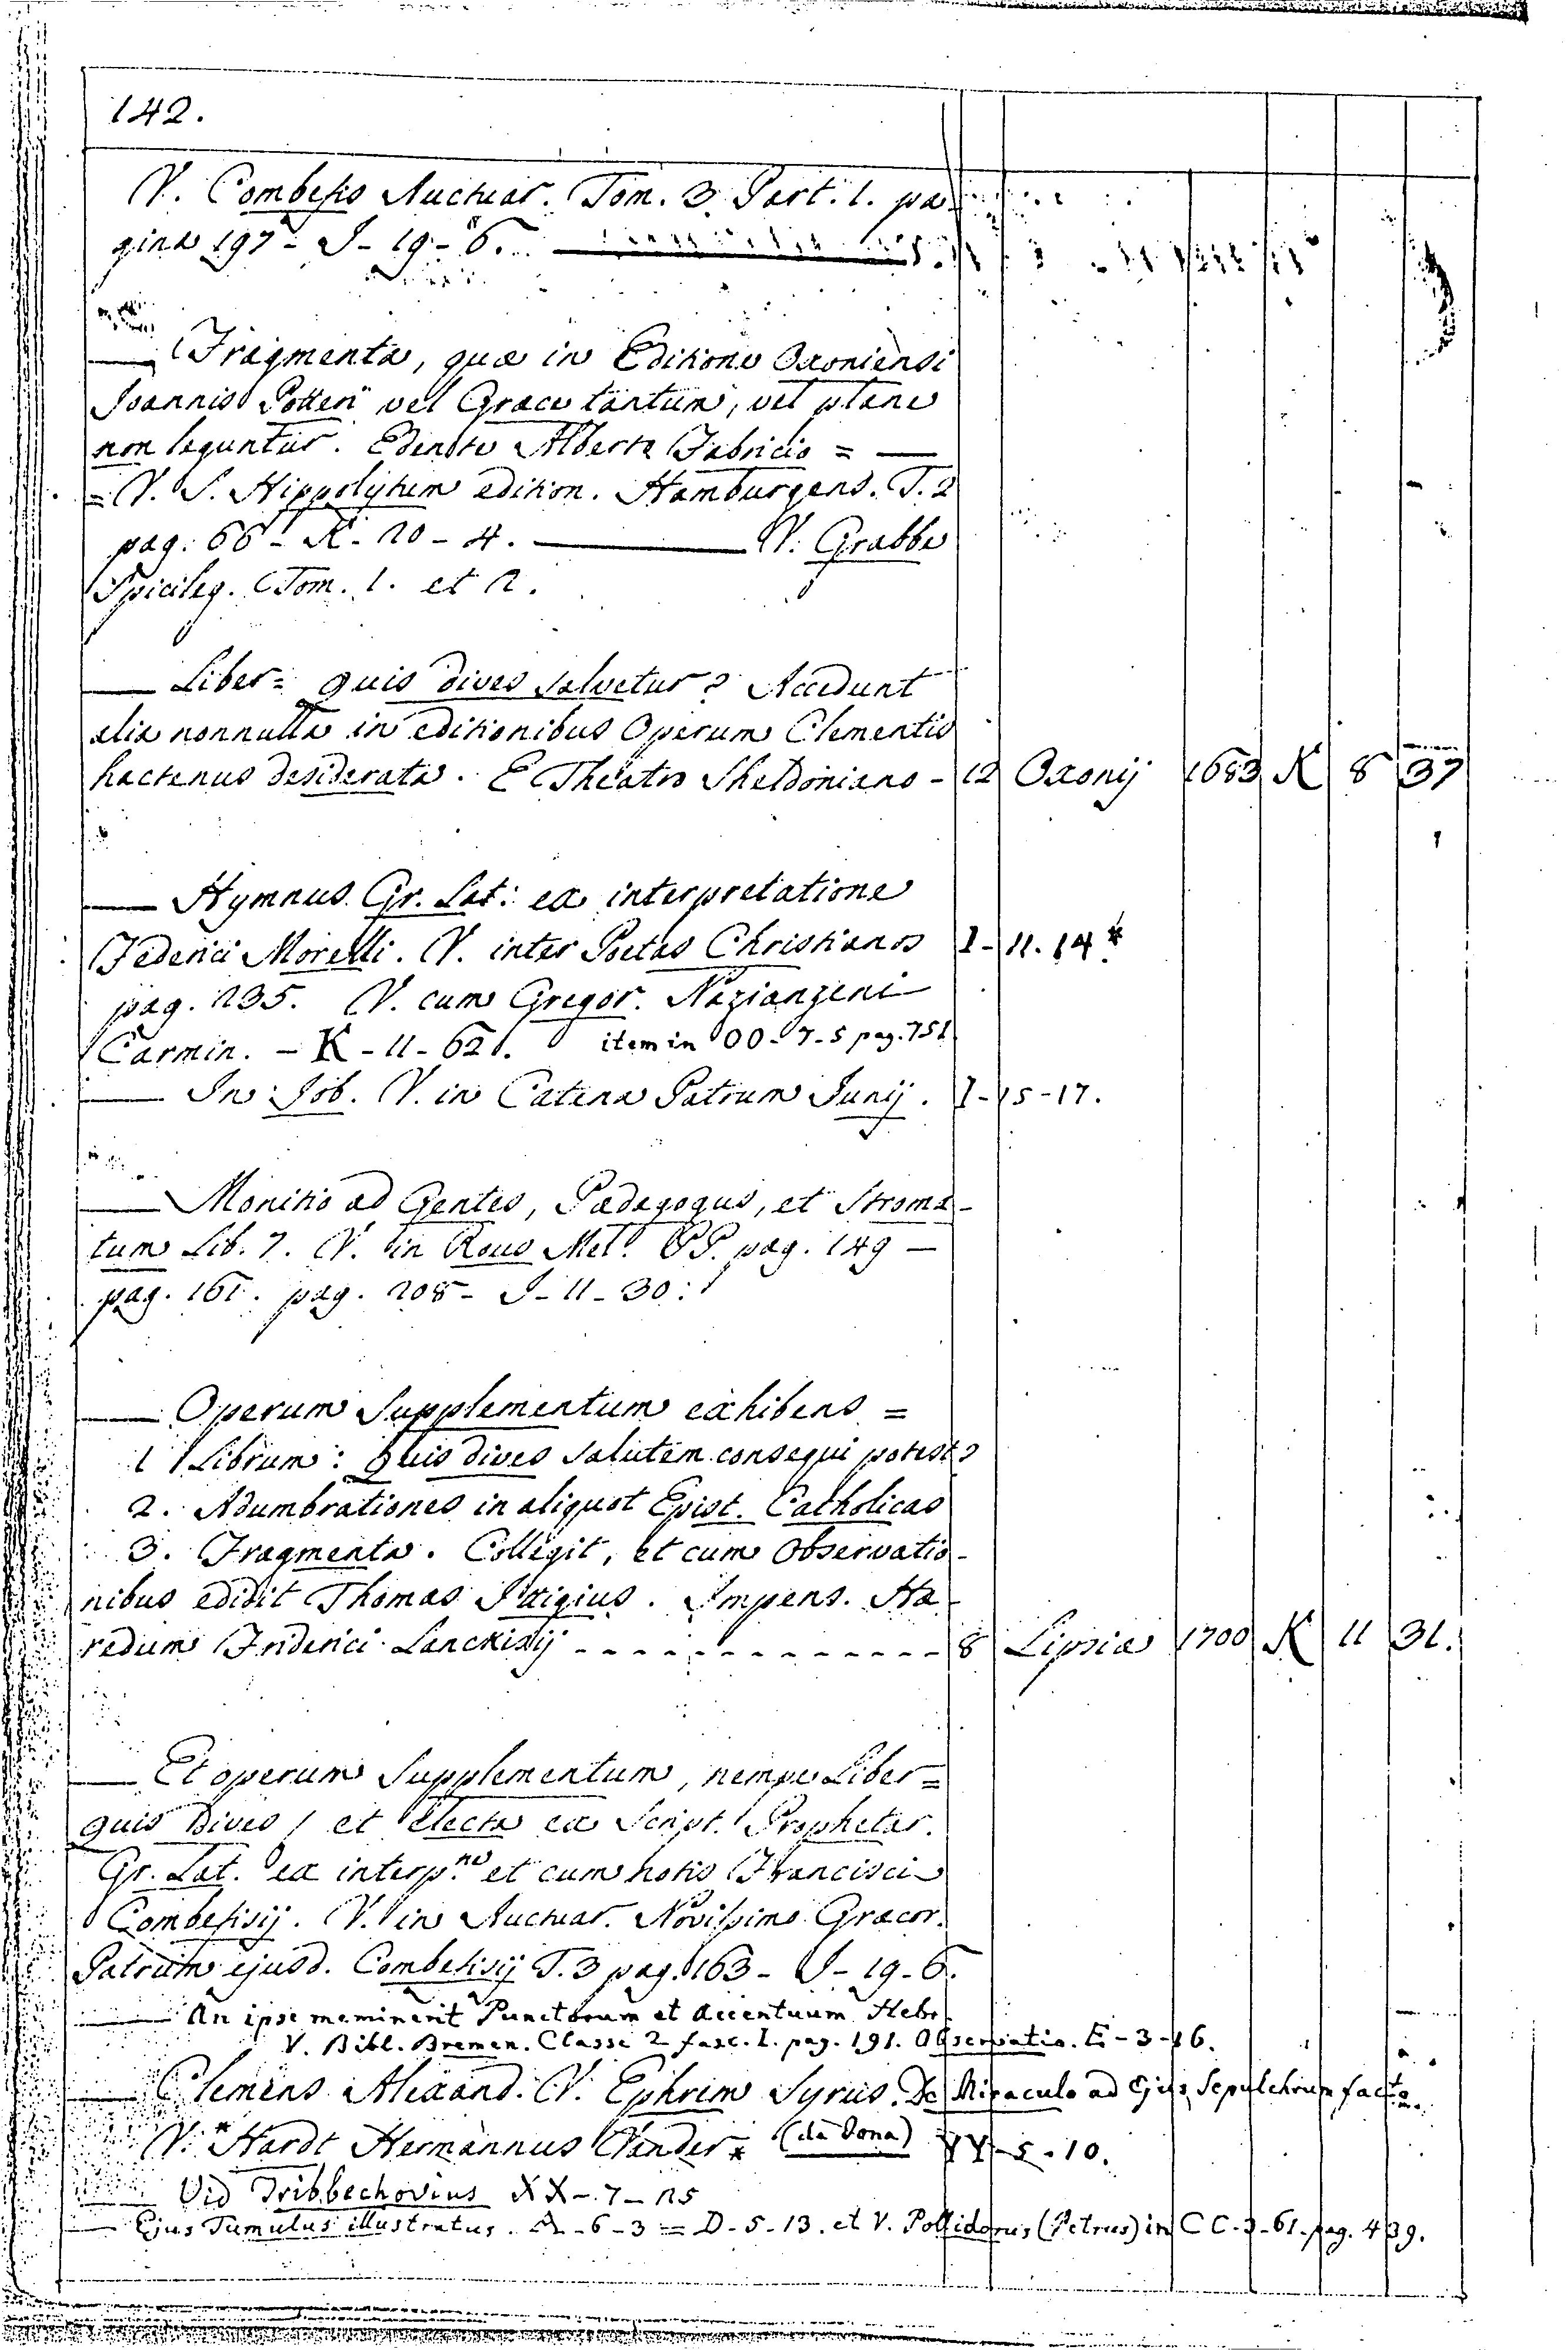 142.
V. Combefis Auctuar. Tom. 3. Part. 1. pa-
gina 197 - I - 19 - 6.
— Fragmenta, quæ in Editione Oxoniensi
Joannis Potteri vel Græce tantum, vel plane
non leguntur. Edente Alberto Fabricio = —
= V. S. Hippolytum edition. Hamburgens. T. 2
pag: 66 - K - 20 - 4. — V. Grabbe
Spicileg. Tom. 1. et 2.
— Liber = quis dives salvetur? Accedunt
alia nonnulla in editionibus Operum Clementis
hactenus desiderata. E Theatro Sheldoniano - 12 Oxonij 1683 K 8 37
— Hymnus. Gr. Lat: ex interpretatione
Federici Morelli. V. inter Poetas Christianos I - 11. 14*
pag. 235. V. cum Gregor. Nazianzeni
Carmin. - K - 11 - 62. item in OO - 7 - 5 pag. 751
— In Job. V. in Catena Patrum Junij. I - 15 - 17.
— Monitio ad Gentes, Pædagogus, et Stroma-
tum Lib. 7. V. in Rous Mel. PP. pag. 149 —
pag. 161. pag. 208 - I - 11 - 30:
— Operum Supplementum exhibens =
1 Librum: Quis dives salutem consequi potest?
2. Adumbrationes in aliquot Epist. Catholicas
3. Fragmenta. Collegit, et cum Observatio-
nibus edidit Thomas Ittigius. Impens. Hæ-
redum Friderici Lanckisij - - - - - - - - - - - - - 8 Lipsiæ 1700 K 11 31.
— Et operum Supplementum, nempe Liber =
quis Dives, et electa ex Script. Prophetar.
Gr. Lat. ex interp.ne et cum notis Francisci
Combefisij. V. in Auctuar. Novissimo Græcor.
Patrum ejusd. Combefisij T. 3 pag. 163 - I - 19 - 6.
— An ipse meminerit Punctorum et Accentuum Hebr.
V. Bibl. Bremen. Classe 2 fasc. I. pag. 191. Observatio. E - 3 - 16.
— Clemens Alexand. V. Ephrem Syrus. De Miraculo ad Ejus Sepulchrum facto.
V. * Hardt Hermannus Vander * (da Dona) YY - 5 - 10.
— Vid Tribbechovius XX - 7 - 25
— Ejus Tumulus illustratus. - 6 - 3 = D - 5 - 13. et V. Pollidorus (Petrus) in CC - 3 - 61. pag. 439.